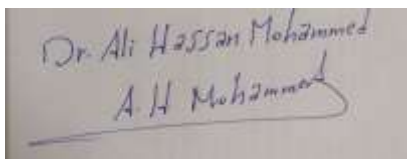 Dr. Ali Hassan Mohammed
A. H Mohammed